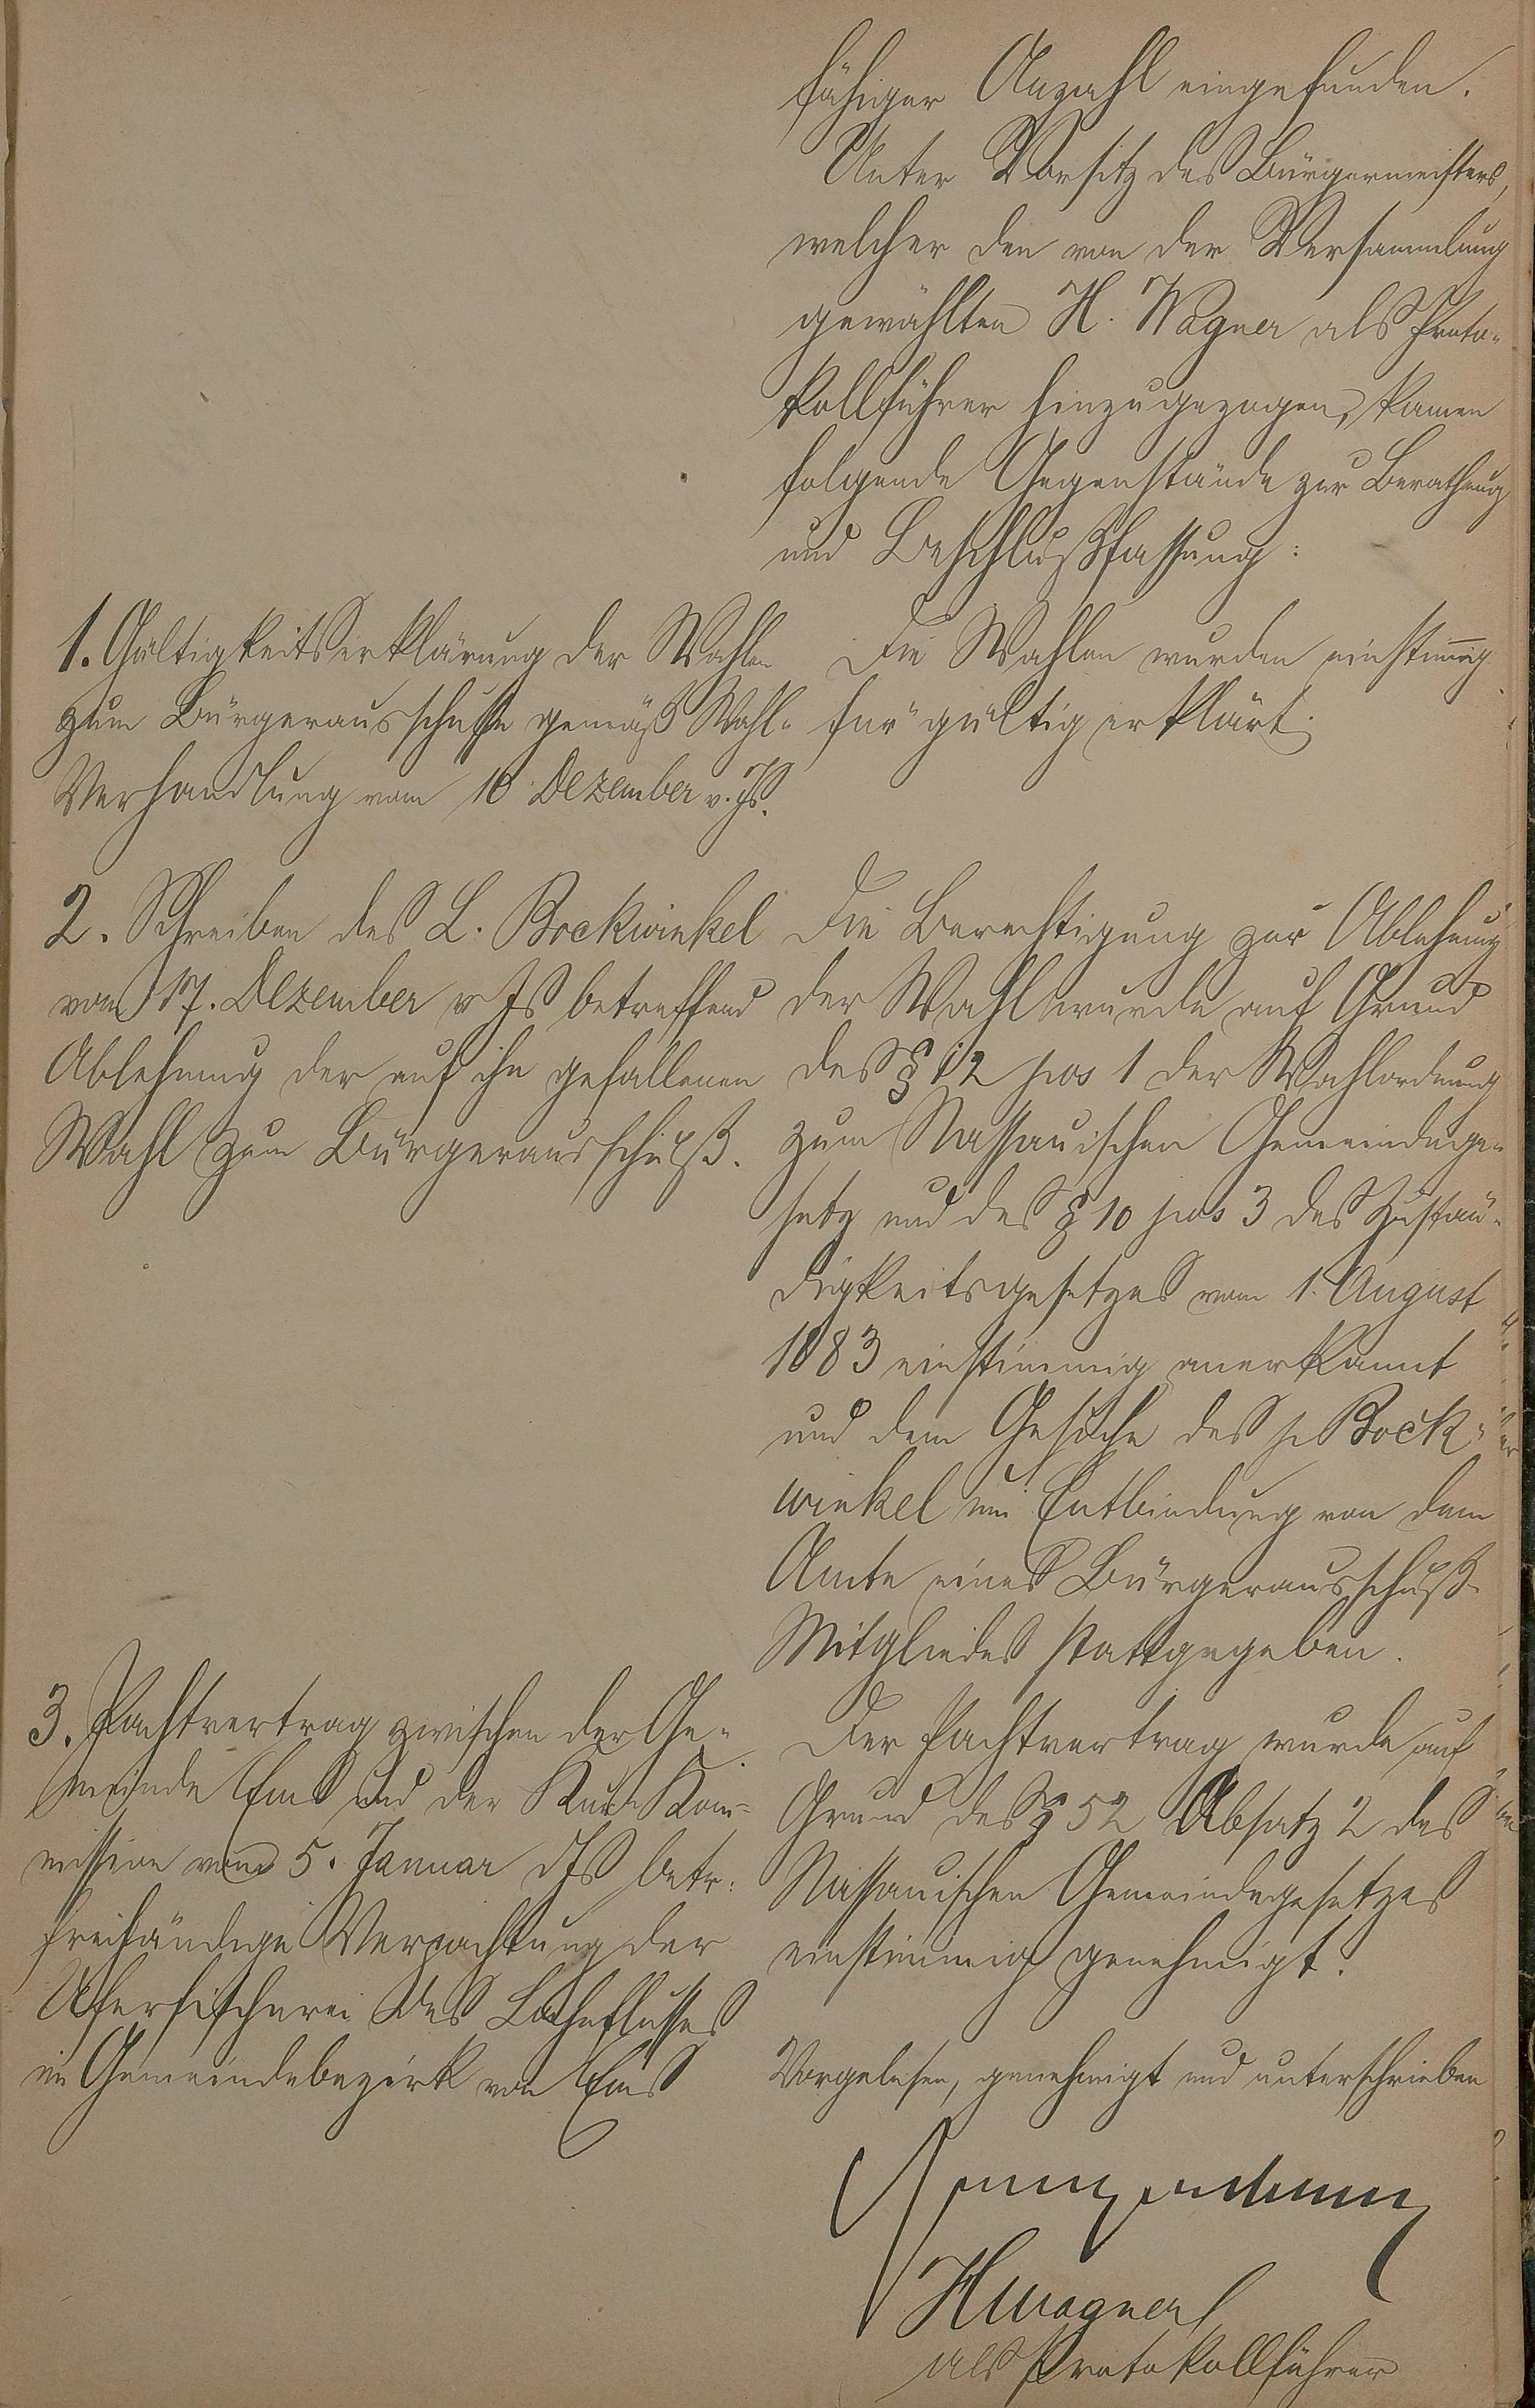 fähiger Anzahl eingefunden.
Unter Vorsitz des Bürgermeisters,
welcher den von der Versammlung
gewählten H. Wagner als Proto-
kollführer hinzugezogen, kamen
folgende Gegenstände zur Berathung
und Beschlußfassung:
1. Gültigkeitserklärung der Wahlen
zum Bürgerausschusse gemäß Wahl-
Verhandlung vom 10 Dezember v. Js.
Die Wahlen wurden einstimig
für gültig erklärt.
2. Schreiben des L. Bockwinkel
vom 17. Dezember v Js betreffend
Ablehnung der auf ihn gefallenen
Wahl zum Bürgerausschuß.
Die Berechtigung zur Ablehnung
der Wahl wurde auf Grund
des § 12 pos 1 der Wahlordnung
zum Nassauischen Gemeindege-
setz und des § 10 pos 3 des Zustän-
digkeitsgesetzes vom 1. August
1883 einstimmig anerkannt
und dem Gesuche des p Bock-
winkel um Entbindung von dem
Amte eines Bürgerausschuß-
Mitgliedes stattgegeben.
3. Pachtvertrag zwischen der Ge-
meinde Ems und der Kur Kom-
mission vom 5. Januar d Js betr:
freihändige Verpachtung der
Uferfischerei des Lahnflusses
im Gemeindebezirk von Ems
Der Pachtvertrag wurde auf
Grund des § 52 Absatz 2 des
Nassauischen Gemeindegesetzes
einstimmig genehmigt.
Vorgelesen, genehmigt und unterschrieben
HWagner
als Protokollführer